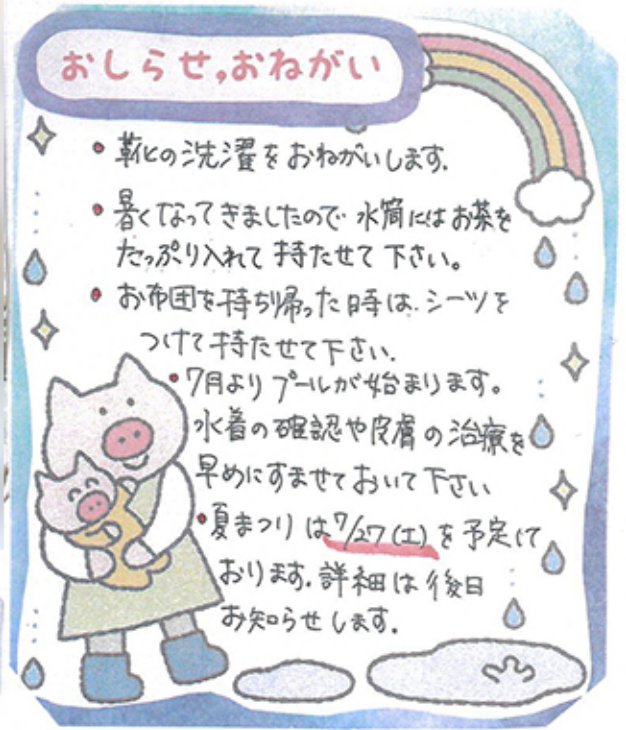 おしらせ,おねがい
・靴の洗濯をおねがいします.
・暑くなってきましたので水筒にはお茶を
たっぷり入れて持たせて下さい。
・お布団を持ち帰った時は、シーツを
つけて持たせて下さい.
・7月よりプールが始まります。
水着の確認や皮膚の治療を
早めにすませておいて下さい
・夏まつりは7/27(土)を予定して
おります.詳細は後日
お知らせします.